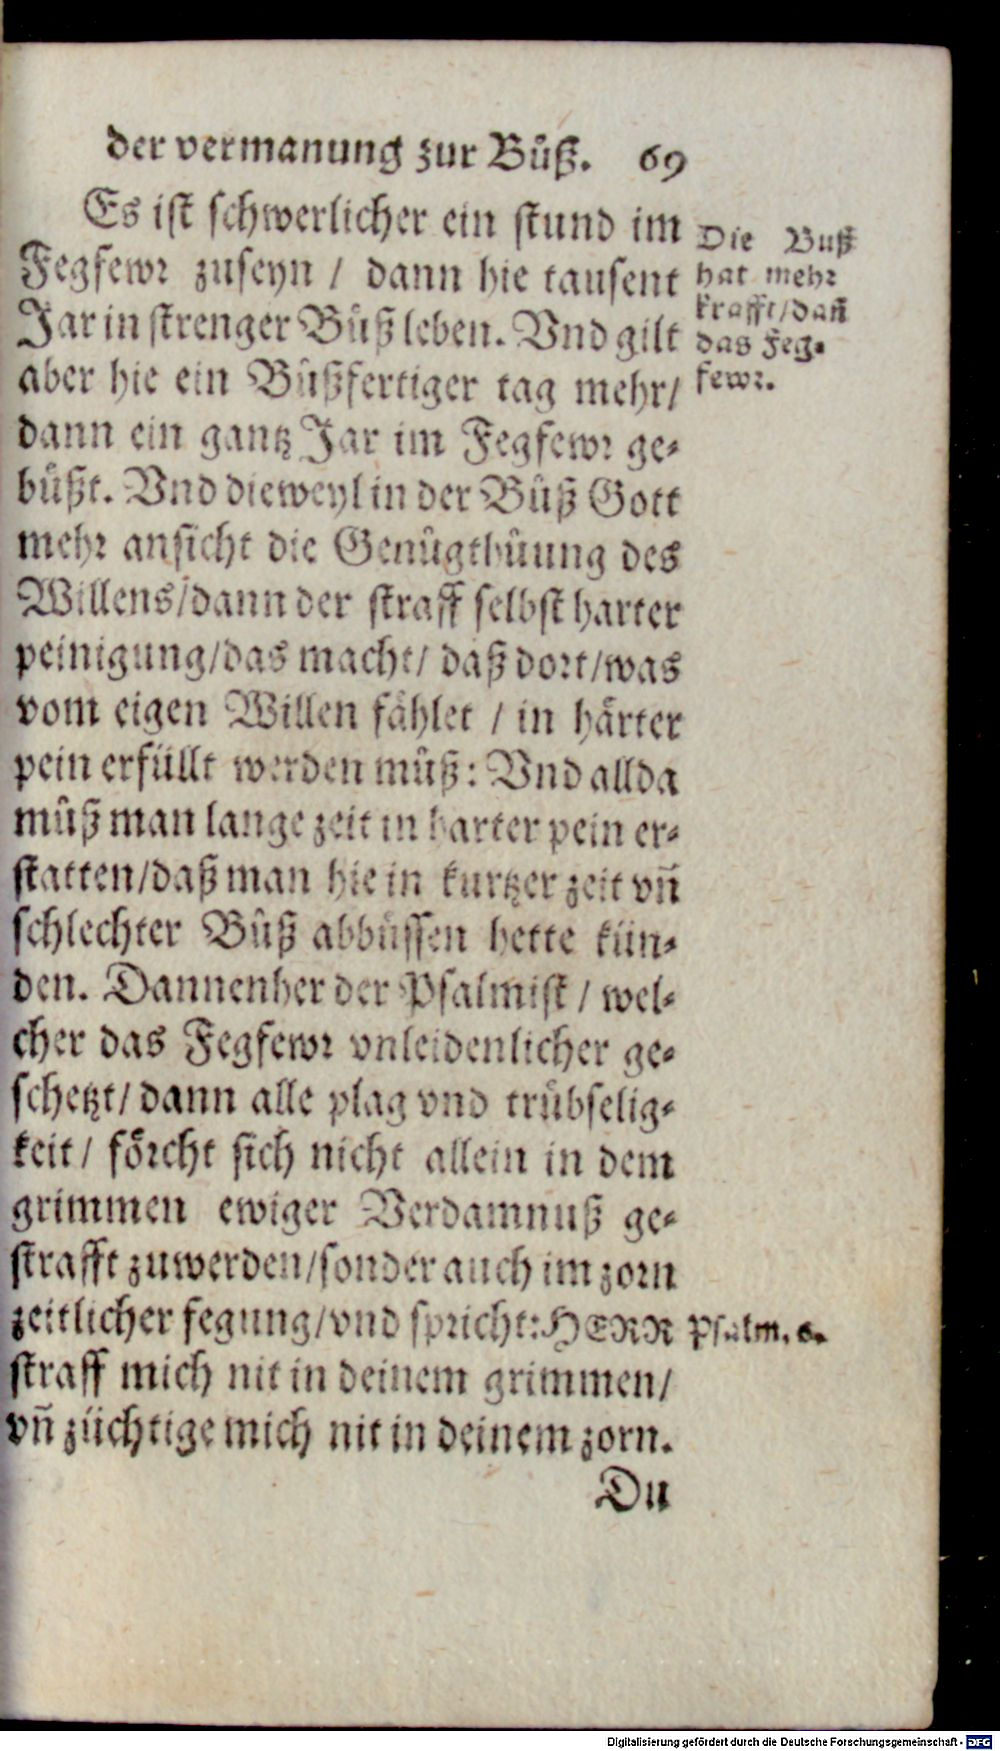 der vermanung zur Bůß. 69
Es ist schwerlicher ein stund im
Fegfewr zuseyn / dann hie tausent
Jar in strenger Bůß leben. Vnd gilt
aber hie ein Bůßfertiger tag mehr/
dann ein gantz Jar im Fegfewr ge⸗
bůßt. Vnd dieweyl in der Bůß Gott
mehr ansicht die Genůgthůung des
Willens/dann der straff selbst harter
peinigung/das macht/ daß dort/was
vom eigen Willen fählet / in härter
pein erfüllt werden můß: Vnd allda
můß man lange zeit in harter pein er⸗
statten/daß man hie in kurtzer zeit vñ
schlechter Bůß abbůssen hette kün⸗
den. Dannenher der Psalmist / wel⸗
cher das Fegfewr vnleidenlicher ge⸗
schetzt/ dann alle plag vnd trůbselig⸗
keit / förcht sich nicht allein in dem
grimmen ewiger Verdamnuß ge⸗
strafft zuwerden/sonder auch im zorn
zeitlicher fegung/vnd spricht: HERR
straff mich nit in deinem grimmen/
vñ züchtige mich nit in deinem zorn.
Du
Die Buß
hat mehr
krafft/dañ
das Feg⸗
fewr.
Psalm. 6.
Digitalisierung gefördert durch die Deutsche Forschungsgemeinschaft - DFG